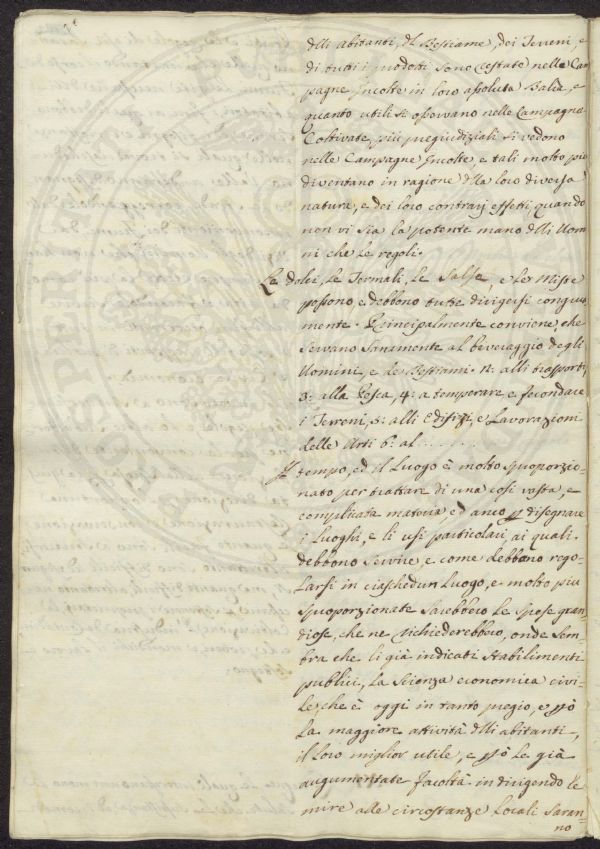 dlli abitanti, dl Bestiame, dei Terreni, e
di tutti i prodotti sono restate nelle Cam
pagne Incolte in loro assoluta Balìa, e
quanto utili si osservano nelle Campagne
Coltivate, più pregiudiziali si vedono
nelle Campagne Incolte, e tali molto più
diventano in ragione dlla loro diversa
natura, e dei loro contrarj effetti, quando
non vi sia la potente mano dlli Uomi
ni che le regoli.
Le dolci, le Termali, le Salse, e le Miste
possono e debbono tutte dirigersi congrua
mente. Principalmente conviene, che
servano sanamente al beveraggio degli
Uomini, e de Bestiami. 2: alli trasporti,
3: alla Pesca, 4: a temperare e fecondare
i Terreni, 5: alli Edifizj, e Lavorazioni
delle Arti 6: al .......
Il tempo, ed il Luogo è molto sproporzio-
nato per trattare di una così vasta, e
complicata materia ed anco p disegnare
i Luoghi, e li usi particolari, ai quali
debbono servire, e come debbano rego-
larsi in ciaschedun Luogo, e molto più
spropozionate sarebbero le spese gran
diose, che ne richiederebbero, onde sem
bra che li già indicati stabilimenti
pubblici, la scienza economica civi-
le, che è oggi in tanto pregio, e pciò
la maggiore attività dlli abitanti,
il loro miglior utile, e pciò le già
augumentate facoltà indirigendo le
mire alle circostanze locali saran-
no